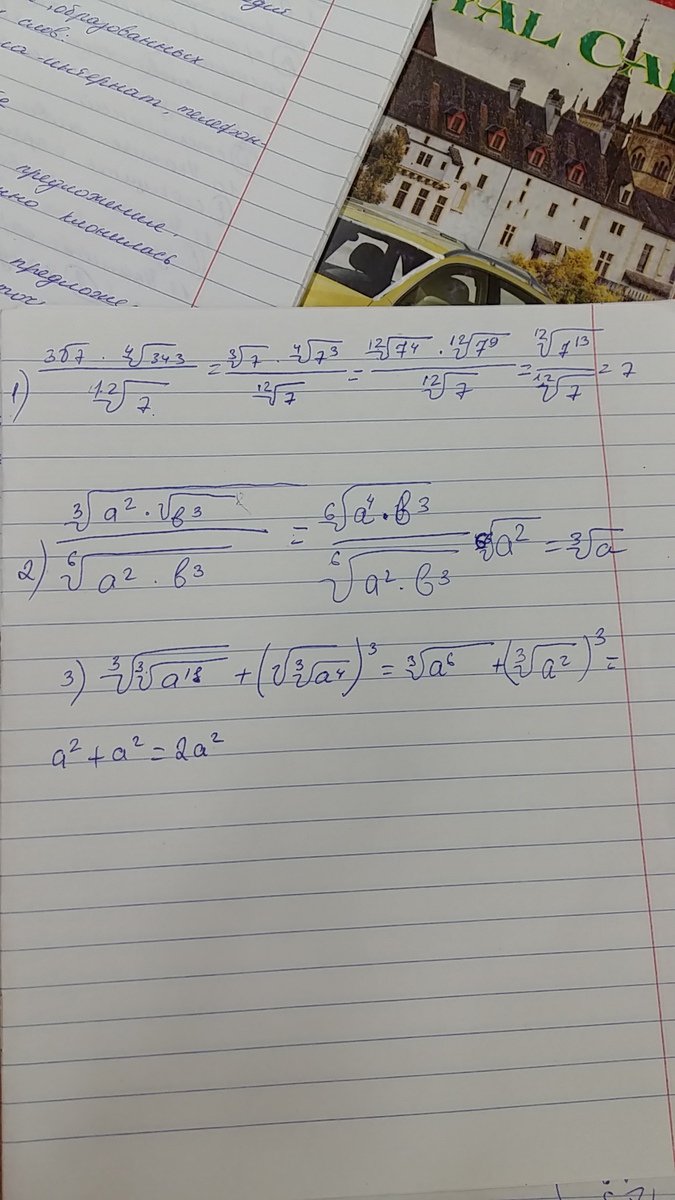 , образованных
слов:
на интернат, телефон-
предложение,
нно клонилась
предложе.
YAL CA
1) 3√7 · ∜343 / ¹²√7 = ∛7 · ∜7³ / ¹²√7 = ¹²√7⁴ · ¹²√7⁹ / ¹²√7 = ¹²√7¹³ / ¹²√7 = 7
2) ∛(a² · √b³) / ⁶√(a² · b³) = ⁶√(a⁴ · b³) / ⁶√(a² · b³) ⁶√a² = ∛a
3) ∛(∛a¹⁸) + (√(∛a⁴))³ = ∛a⁶ + (∛a²)³ =
a² + a² = 2a²